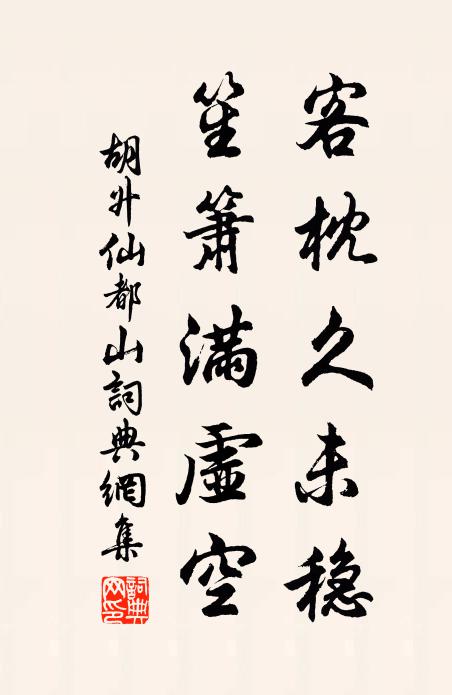 客枕久未稳
笙箫满虚空
胡升仙都山词典网集
词典网印